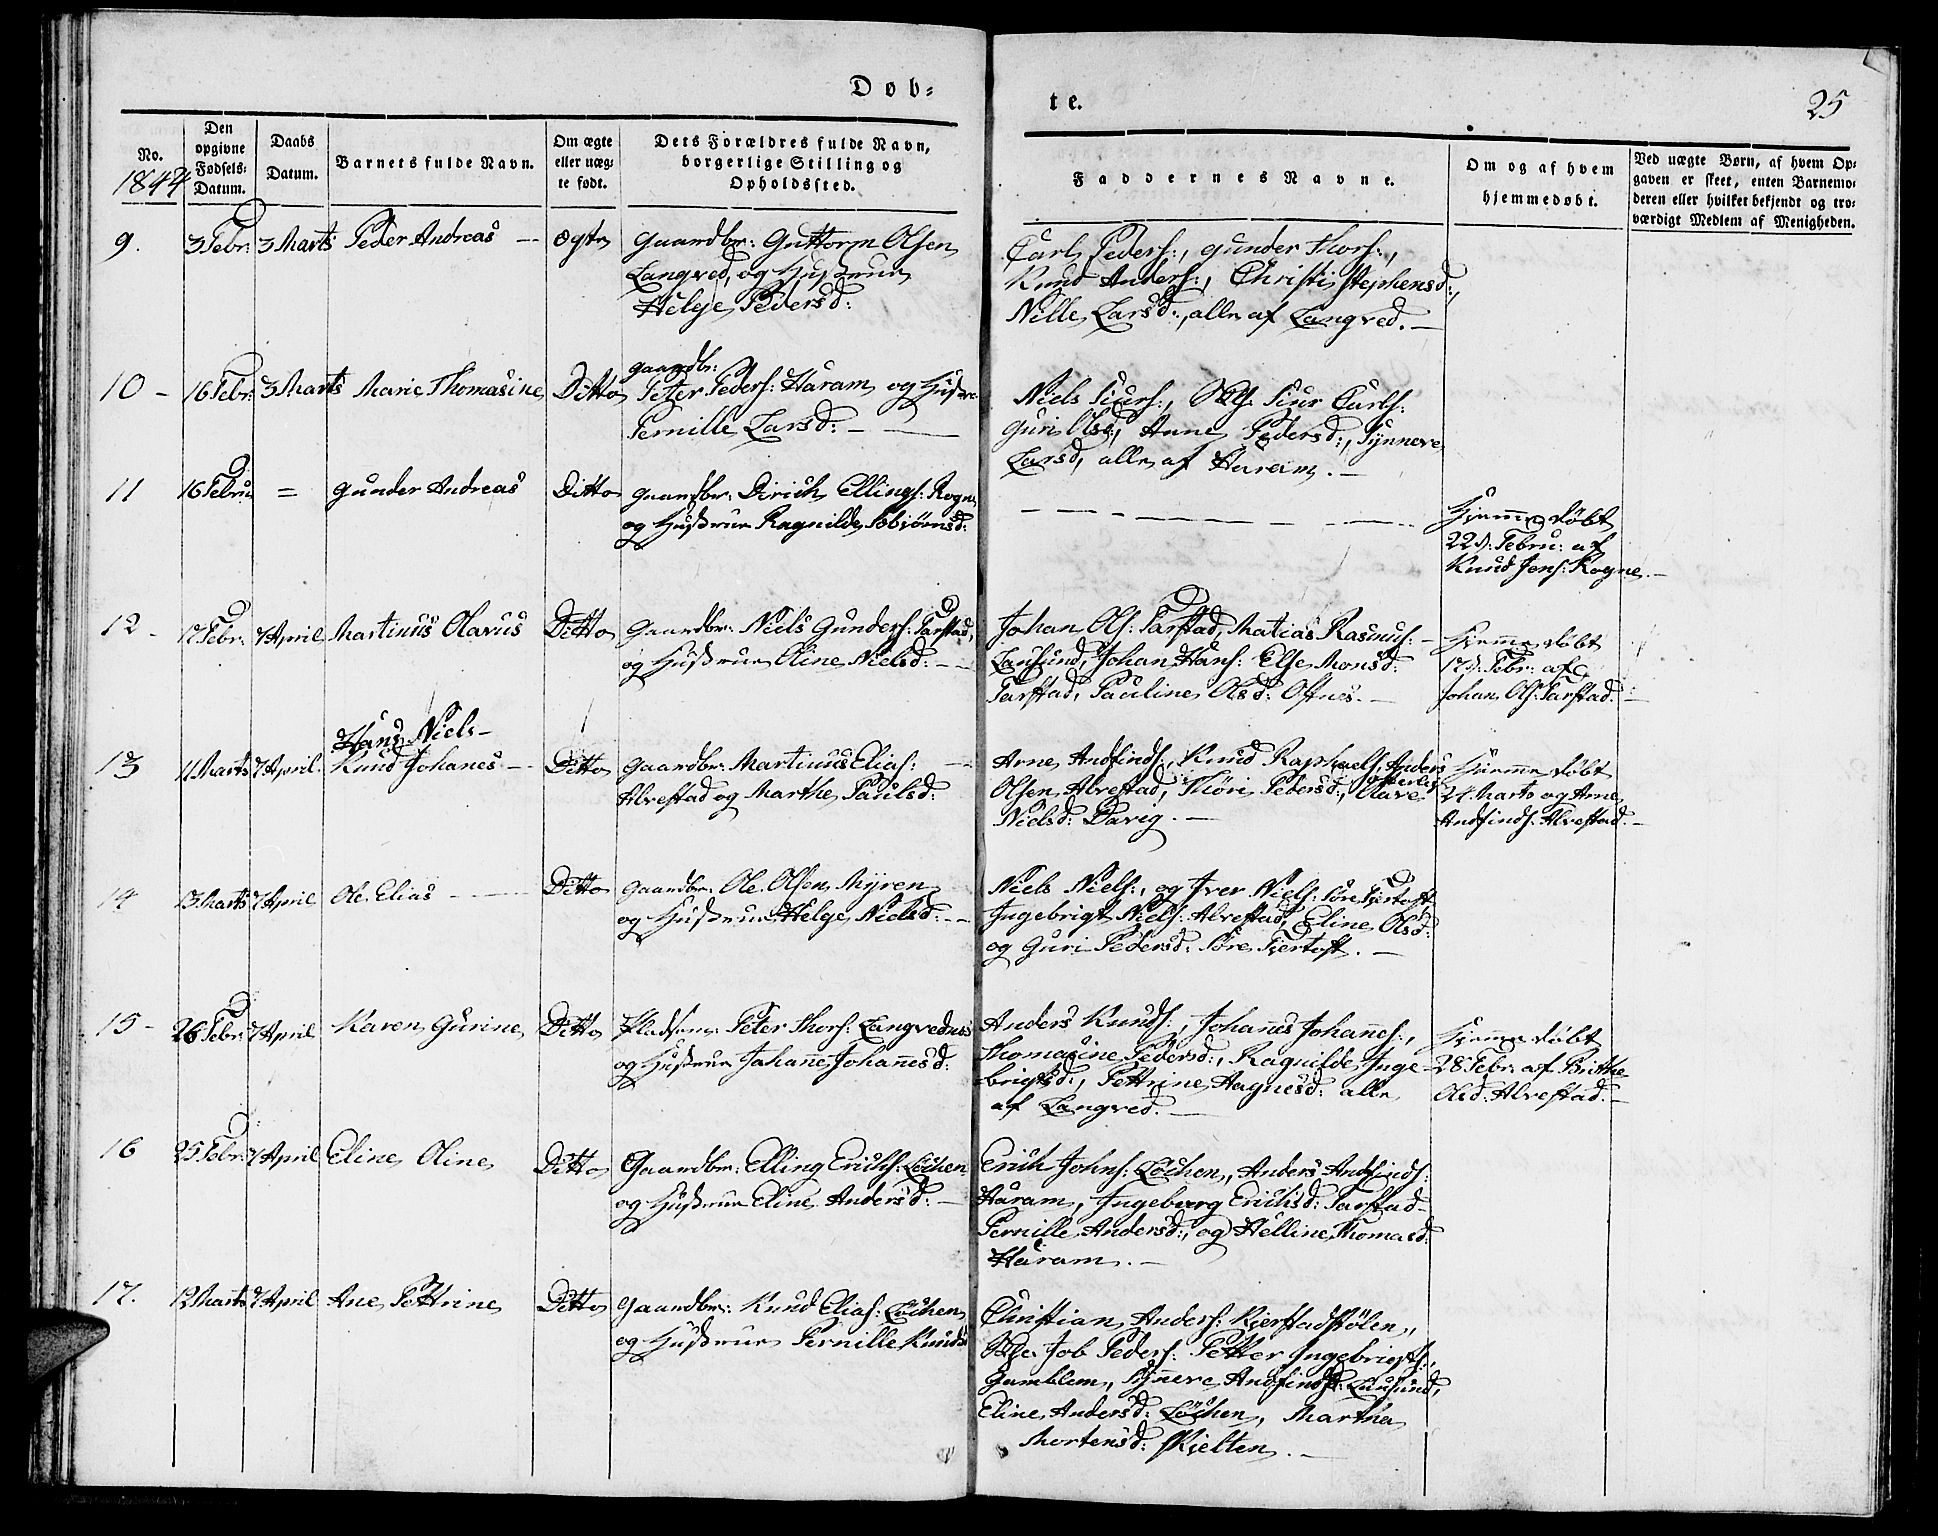 Døb=
te.
25
No.
1844
Den
opgivne
Fødsels=
Datum.
Daabs
Datum.
Barnets fulde Navn.
Om ægte
eller uæg=
te født.
Dets Forældres fulde Navn,
borgerlige Stilling og
Opholdssted.
Faddernes Navne.
Om og af hvem
hjemmedøbt.
Ved uægte Børn, af hvem Op=
gaven er skeet, enten Barnemo=
deren eller hvilket bekjendt og tro=
værdigt Medlem af Menigheden.
9. 3 Febr: 3 Marts Peder Andreas — Ægte Gaardbr: Guttorm Olsen
Langved, og Hustrue
Helge Pedersd:
Carl Peders:, Gunder Thors:,
Knud Anders:, Christi Stephensd:,
Nille Larsd:, alle af Langved. —
10 - 16 Febr: 3 Marts Marie Thomasine Ditto Gaardbr:
Peter Peders: Haram og Hustrue
Pernille Larsd: —
Niels Siurs:, Siur Carls:
Guri Olsd:, Anne Pedersd:, Synneve
Larsd, alle af Haram. —
11 16 Febru = Gunder Andreas Ditto Gaardbr: Dirich Ellings: Rogne
og Hustrue Ragnilde Tobiørnsd:
Hjemmedøbt
22d: Febru: af
Knud Jens: Rogne. —
12 - 17 Febr: 7 April Martinus Olavus Ditto Gaardbr: Niels Gunders: Farstad,
og Hustrue Oline Nielsd: —
Johan Ols: Farstad, Matias Rasmus: -
Lausund, Johan Hans: Else Monsd:
Farstad, Pauline Olsd: Ofnes. —
Hjemmedøbt
17d: Febr: af
Johan Ols: Farstad. —
13 11 Marts 7 April. Hans Niels-
Knud Johanes — Ditto Gaardbr: Martinus Elias: —
Alvestad og Marthe Paulsd:
Arne Andfinds:, Knud Raphaels, Anders
Olsen Alvestad, Thøri Pedersd:, Olave
Nielsd: Davig. —
Hjemmedøbt
24. Marts og Arne
Andfinds. Alvestad. —
14 13 Marts 7 April Ole Elias — Ditto Gaardbr: Ole Olsen Myren
og Hustrue Helge Nielsd: —
Niels Niels:, og Iver Niels: Søre Fjertoft,
Ingebrigt Niels: Alvestad, Eline Olsd:
og Guri Pedersd: Søre Fjertoft. —
15 - 26 Febr: 7 April Karen Gurine Ditto Pladsm: Peter Thors: Langvednæs
og Hustrue Johanne Johanesd:
Anders Knuds:, Johannes Johannes:,
Thomasine Pedersd:, Ragnilde Inge-
brigtsd:, Pettrine Aagnesd: alle
af Langved. —
Hjemmedøbt
28 Febr: af Britthe
Olsd: Alvestad. —
16 25 Febr: 7 April Eline Oline Ditto Gaardbr: Elling Erichs: Løchen
og Hustrue Eline Andersd: —
Erich Johns: Løchen, Anders Andfinds:
Haram, Ingeborg Erichsd: Farstad-
Pernille Andersd:, og Helline Thomasd:
Haram. —
17. 12 Marts 7 April Ane Pettrine Ditto Gaardbr: Knud Elias: Løchen
og Hustrue Pernille Knudsd
Christian Anders: Kierstadstølen,
Job Peders: Petter Ingebrigts:,
Gamblem, Synneve Andfindsd: Lausund,
Eline Andersd: Løchen, Martha
Mortensd: Skielten. —